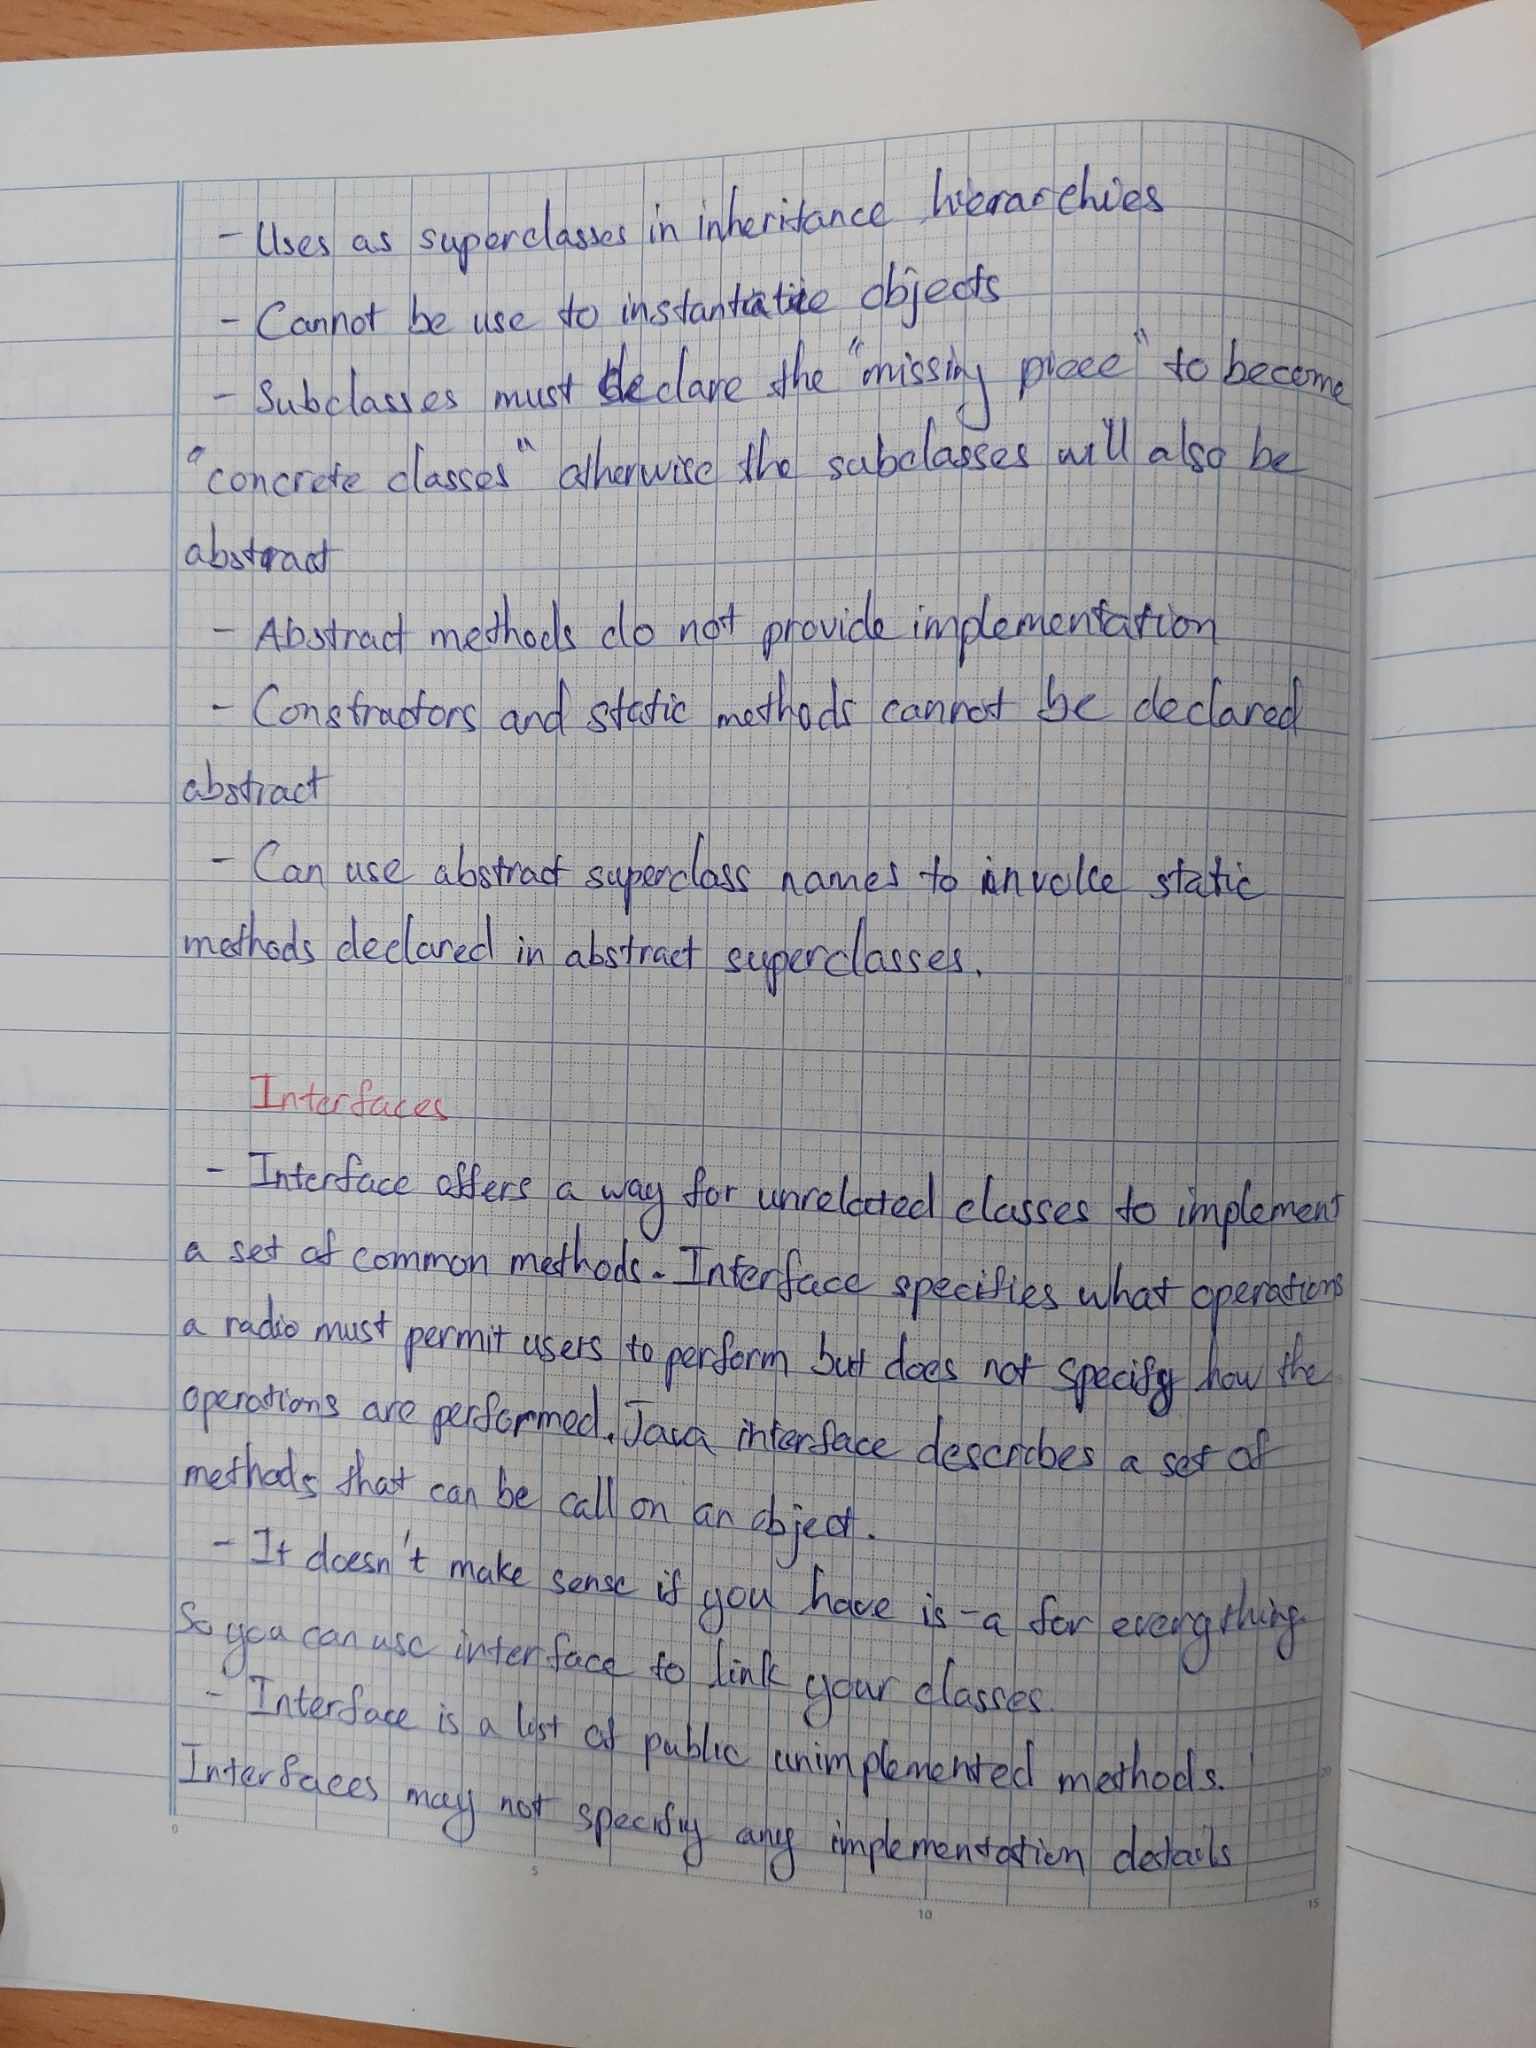 - Uses as superclasses in inheritance hierarchies
- Cannot be use to instantiate objects
- Subclasses must declare the "missing piece" to become
"concrete classes" otherwise the subclasses will also be
abstract
- Abstract methods do not provide implementation
- Constractors and static methods cannot be declared
abstract
- Can use abstract superclass names to invoke static
methods declared in abstract superclasses.
Interfaces
- Interface offers a way for unrelated classes to implement
a set of common methods. Interface specifies what operations
a radio must permit users to perform but does not specify how the
operations are performed. Java interface describes a set of
methods that can be call on an object.
- It doesn't make sense if you have is-a for everything.
So you can use interface to link your classes.
- Interface is a list of public unimplemented methods.
Interfaces may not specify any implementation details
0 5 10 15
10
20